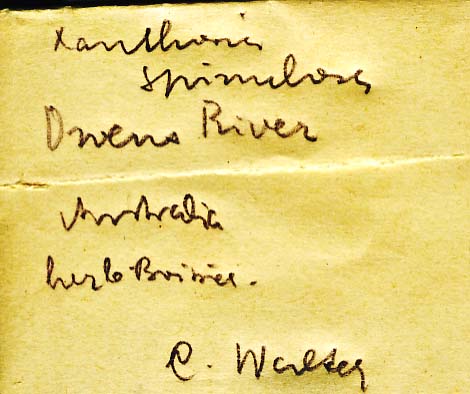 Xanthosia
spinulosa
Owens River
Australia
herb Boissier.
C. Walter